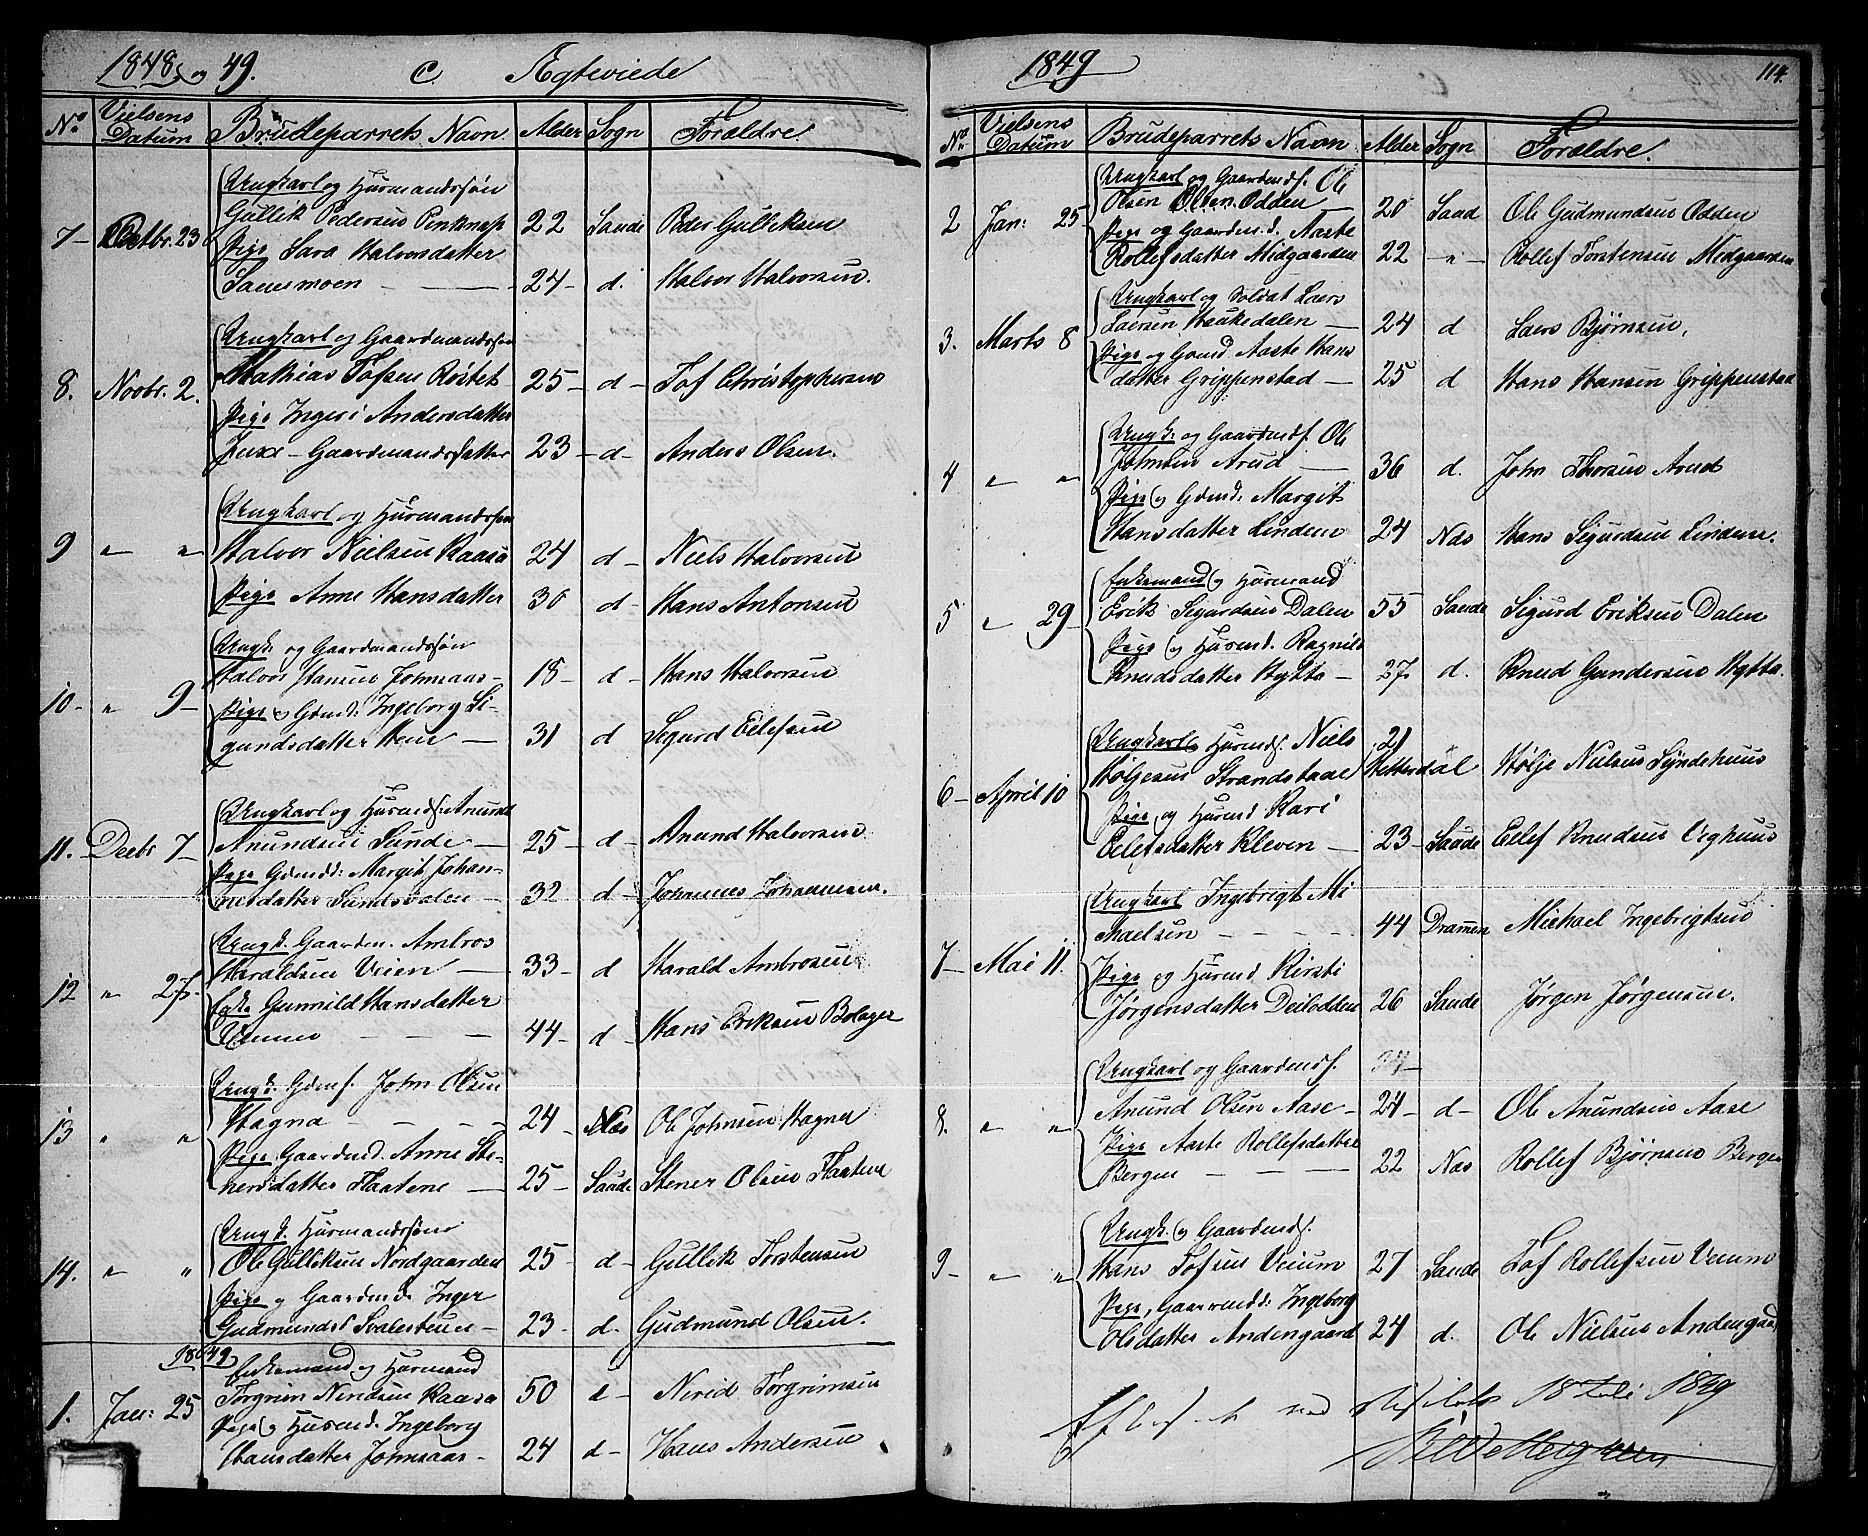 1848 og 49. C Ægteviede
No Vielsens Datum Brudeparrets Navn Alder Sogn Forældre.
Ungkarl og Huusmandssøn
7- Octbr. 23 Gullik Pedersen 22 Saude Peder Gulliksen
Pige Sara Halvorsdatter
Sanesmoen 24- d. Halvor Halvorsen.
Ungkarl og Gaardmandssøn
8. Novbr. 2. Mathias Tofsen Røstet 25- d- Tof Christophersen
Pige Ingeri Andersdatter
Juxa - Gaardmandsdatter 23- d- Anders Olsen.
Ungkarl og Huusmandssøn
9 " " Halvor Nielsen Raasa 24 d- Niels Halvorsen
Pige Anne Hansdatter 30 d- Hans Antonsen
Ungk. og Gaardmandssøn
Halvor Hansen Johnsaas- 18- d- Hans Halvorsen
10- " 9- Pige og Gdmd: Ingeborg Si-
gurdsdatter Hem 31 d Sigurd Eilefsen
Ungkarl og Huusmds. Anund
11. Decbr 7- Anundsen Sunde- 25- d- Anund Halvorsen
Pige Gdmdd: Margit Johan-
nesdatter Sundsdalen- 32- d- Johannes Johannesen.
Ungk. Gaardm. Ambros
Haraldsen Veien 33- d Harald Ambrosen
12 " 27. Enke Gunnild Hansdatter
44- d- Hans Eriksen Bolager
Ungk. Gdms. John Olsen
Hagna 24- Næs Ole Johnsen Hagner
13 " " Pige, Gaardmd. Anne Ste-
nersdatter Flaatene 25- Saude Stener Olsen Flaaten
Ungk. Huusmandssøn
14. " " Ole Gulliksen Nordgaarden 25- d- Gullik Torstensen
Pige og Gaardmd. Inger
Gudmundsd. Svalesteen- 23- d. Gudmund Olsen.
1849
Enkemand og Huusmand
1. Jan: 25 Torgrim Neridsen Raasa 50 d- Nerid Torgrimsen
Pige og Huusmd. Ingeborg
Hansdatter Johnsaas- 24 d- Hans Andersen
1849 114.
No Vielsens Datum Brudeparrets Navn Alder Sogn Forældre.
Ungkarl og Gaardmds. Ole
2 Jan: 25 Olsen Odden 20 Saud Ole Gudmundsen Odden
Pige og Gaardm.d. Aaste
Rollefsdatter Midgaarden 22 -"- Rollef Torstensen Midgaarden
Ungkarl og Soldat Laers
3. Marts 8 Laersen Haukedalen- 24 d Laers Bjørnsen,
Pige og Gdmd. Aaste Hans
datter Grippenstad- 25 d Hans Hansen Grippenstad
Ungk. og Gaardmds. Ole
4 " " Johnsen Arud 36 d. John Thorsen Arud
Pige og Gdmd. Margit
Hansdatter Lindem 24 Næs Hans Sigurdsen Lindem.
Enkemand og Huusmand
5 " 29- Erik Sigurdsen Dalen 55 Saude Sigurd Eriksen Dalen
Pige og Huusmd. Ragnild
Knudsdatter Hytta- 27. d. Knud Gundersen Hytta.
Ungkarl og Huusmds. Niels 21
Høljesen Strandstaae Hitterdal Hølje Nielsen Syndehuus
6- April 10 Pige, og Huusmd Kari
Eilefsdatter Kleven- 23- Saude Eilef Knudsen Veghuus
Ungkarl Ingebrigt Mi
chaelsen 44 Dramen Michael Ingebrigtsen
7- Mai 11. Pige og Huusmd. Kirsti
Jørgensdatter Deilodden 26 Saude Jørgen Jørgensen.
Ungkarl og Gaardmds. 34-
8. " " Anund Olsen Aase- 24- d- Ole Anundsen Aase
Pige Aaste Rollefsdatter
Bergen 22 Næs Rollef Bjørnsen Bergen
Ungk. og Gaardmds.
9- " " Hans Tofsen Veium 27 Saude Tof Rollefsen Veium
Pige, Gaarmdd: Ingeborg
Olsdatter Andengaard 24 d. Ole Nielsen Andengaard
18 Juli 1849